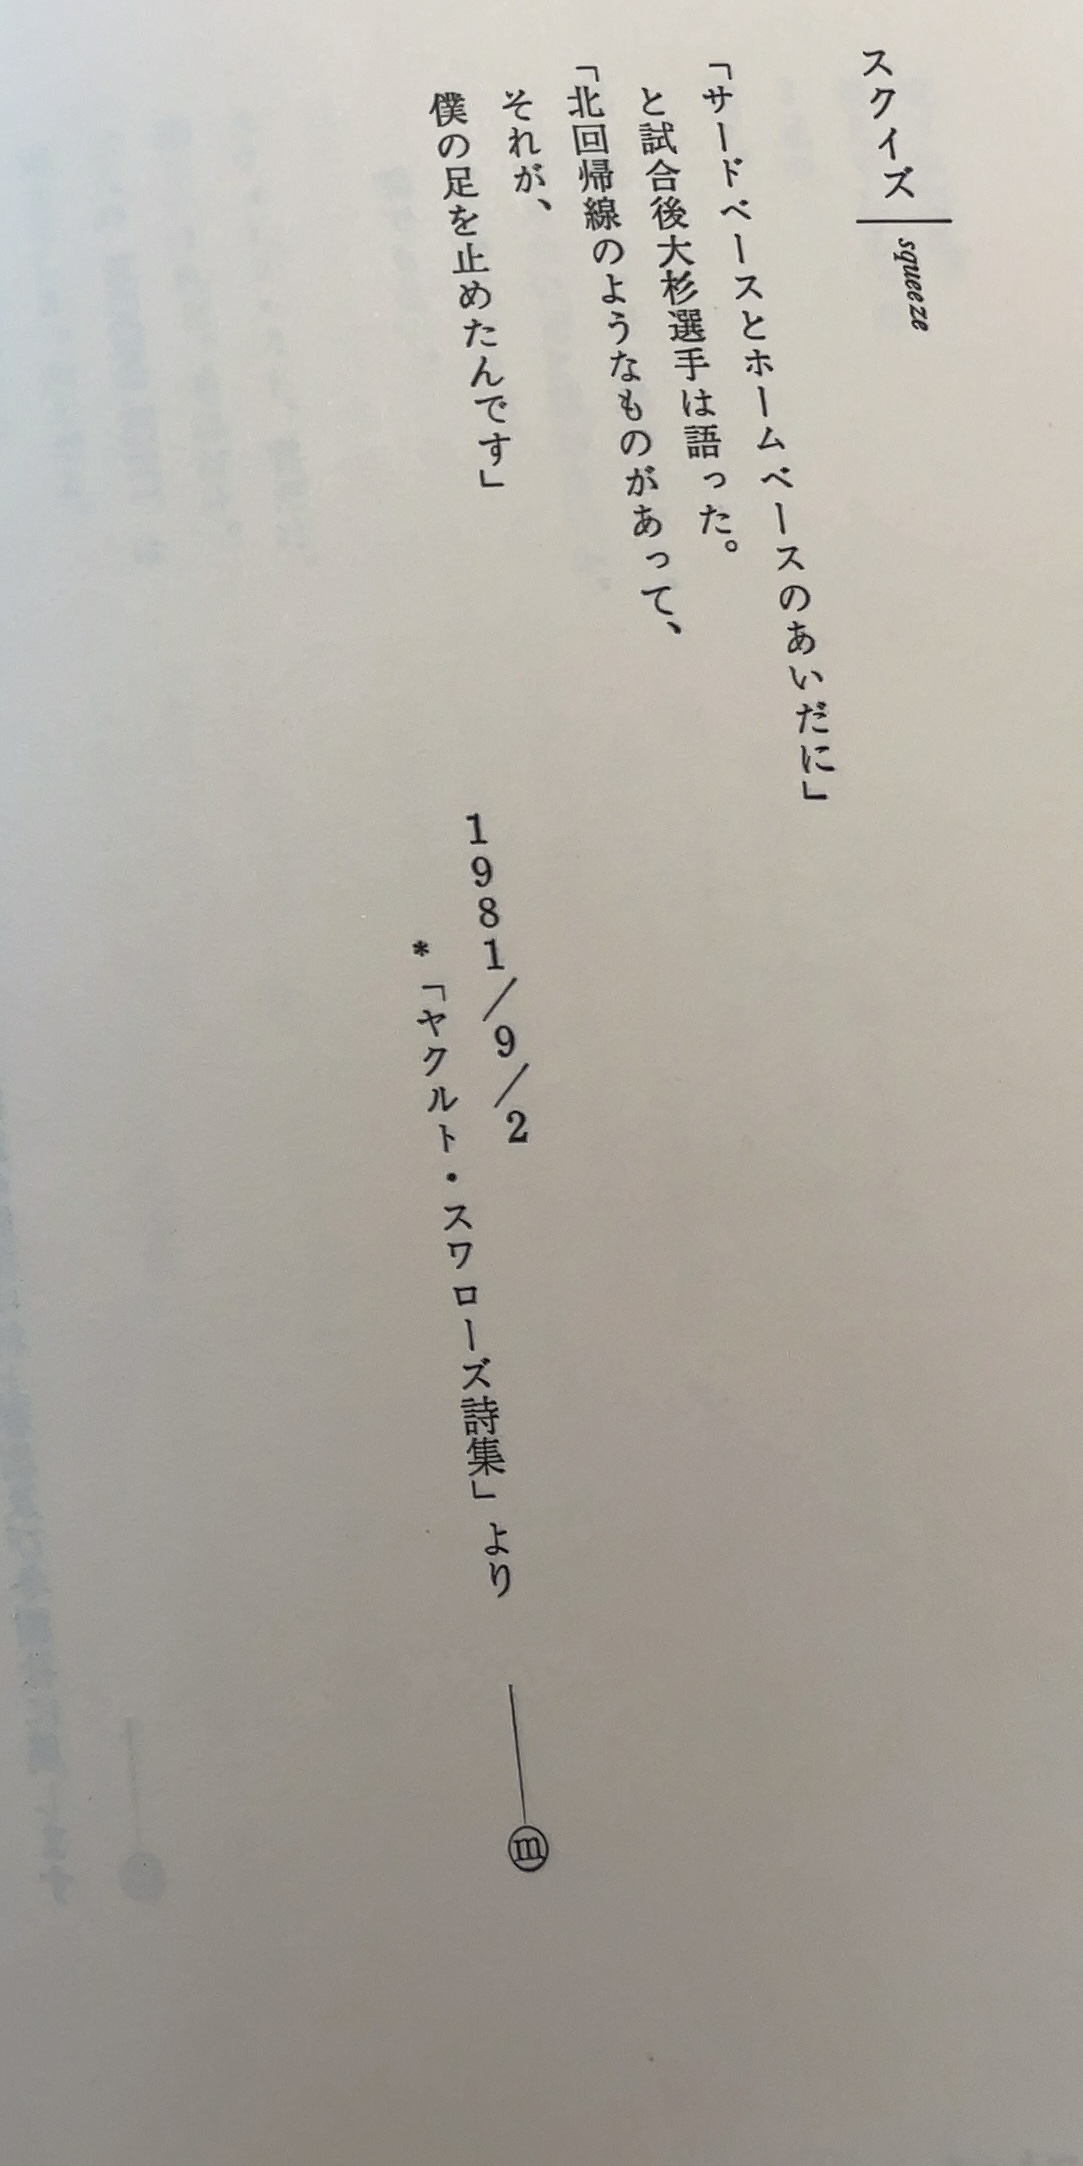 スクイズ squeeze
「サードベースとホームベースのあいだに」
と試合後大杉選手は語った。
「北回帰線のようなものがあって、
それが、
僕の足を止めたんです」
1981/9/2
*「ヤクルト・スワローズ詩集」より
ⓜ